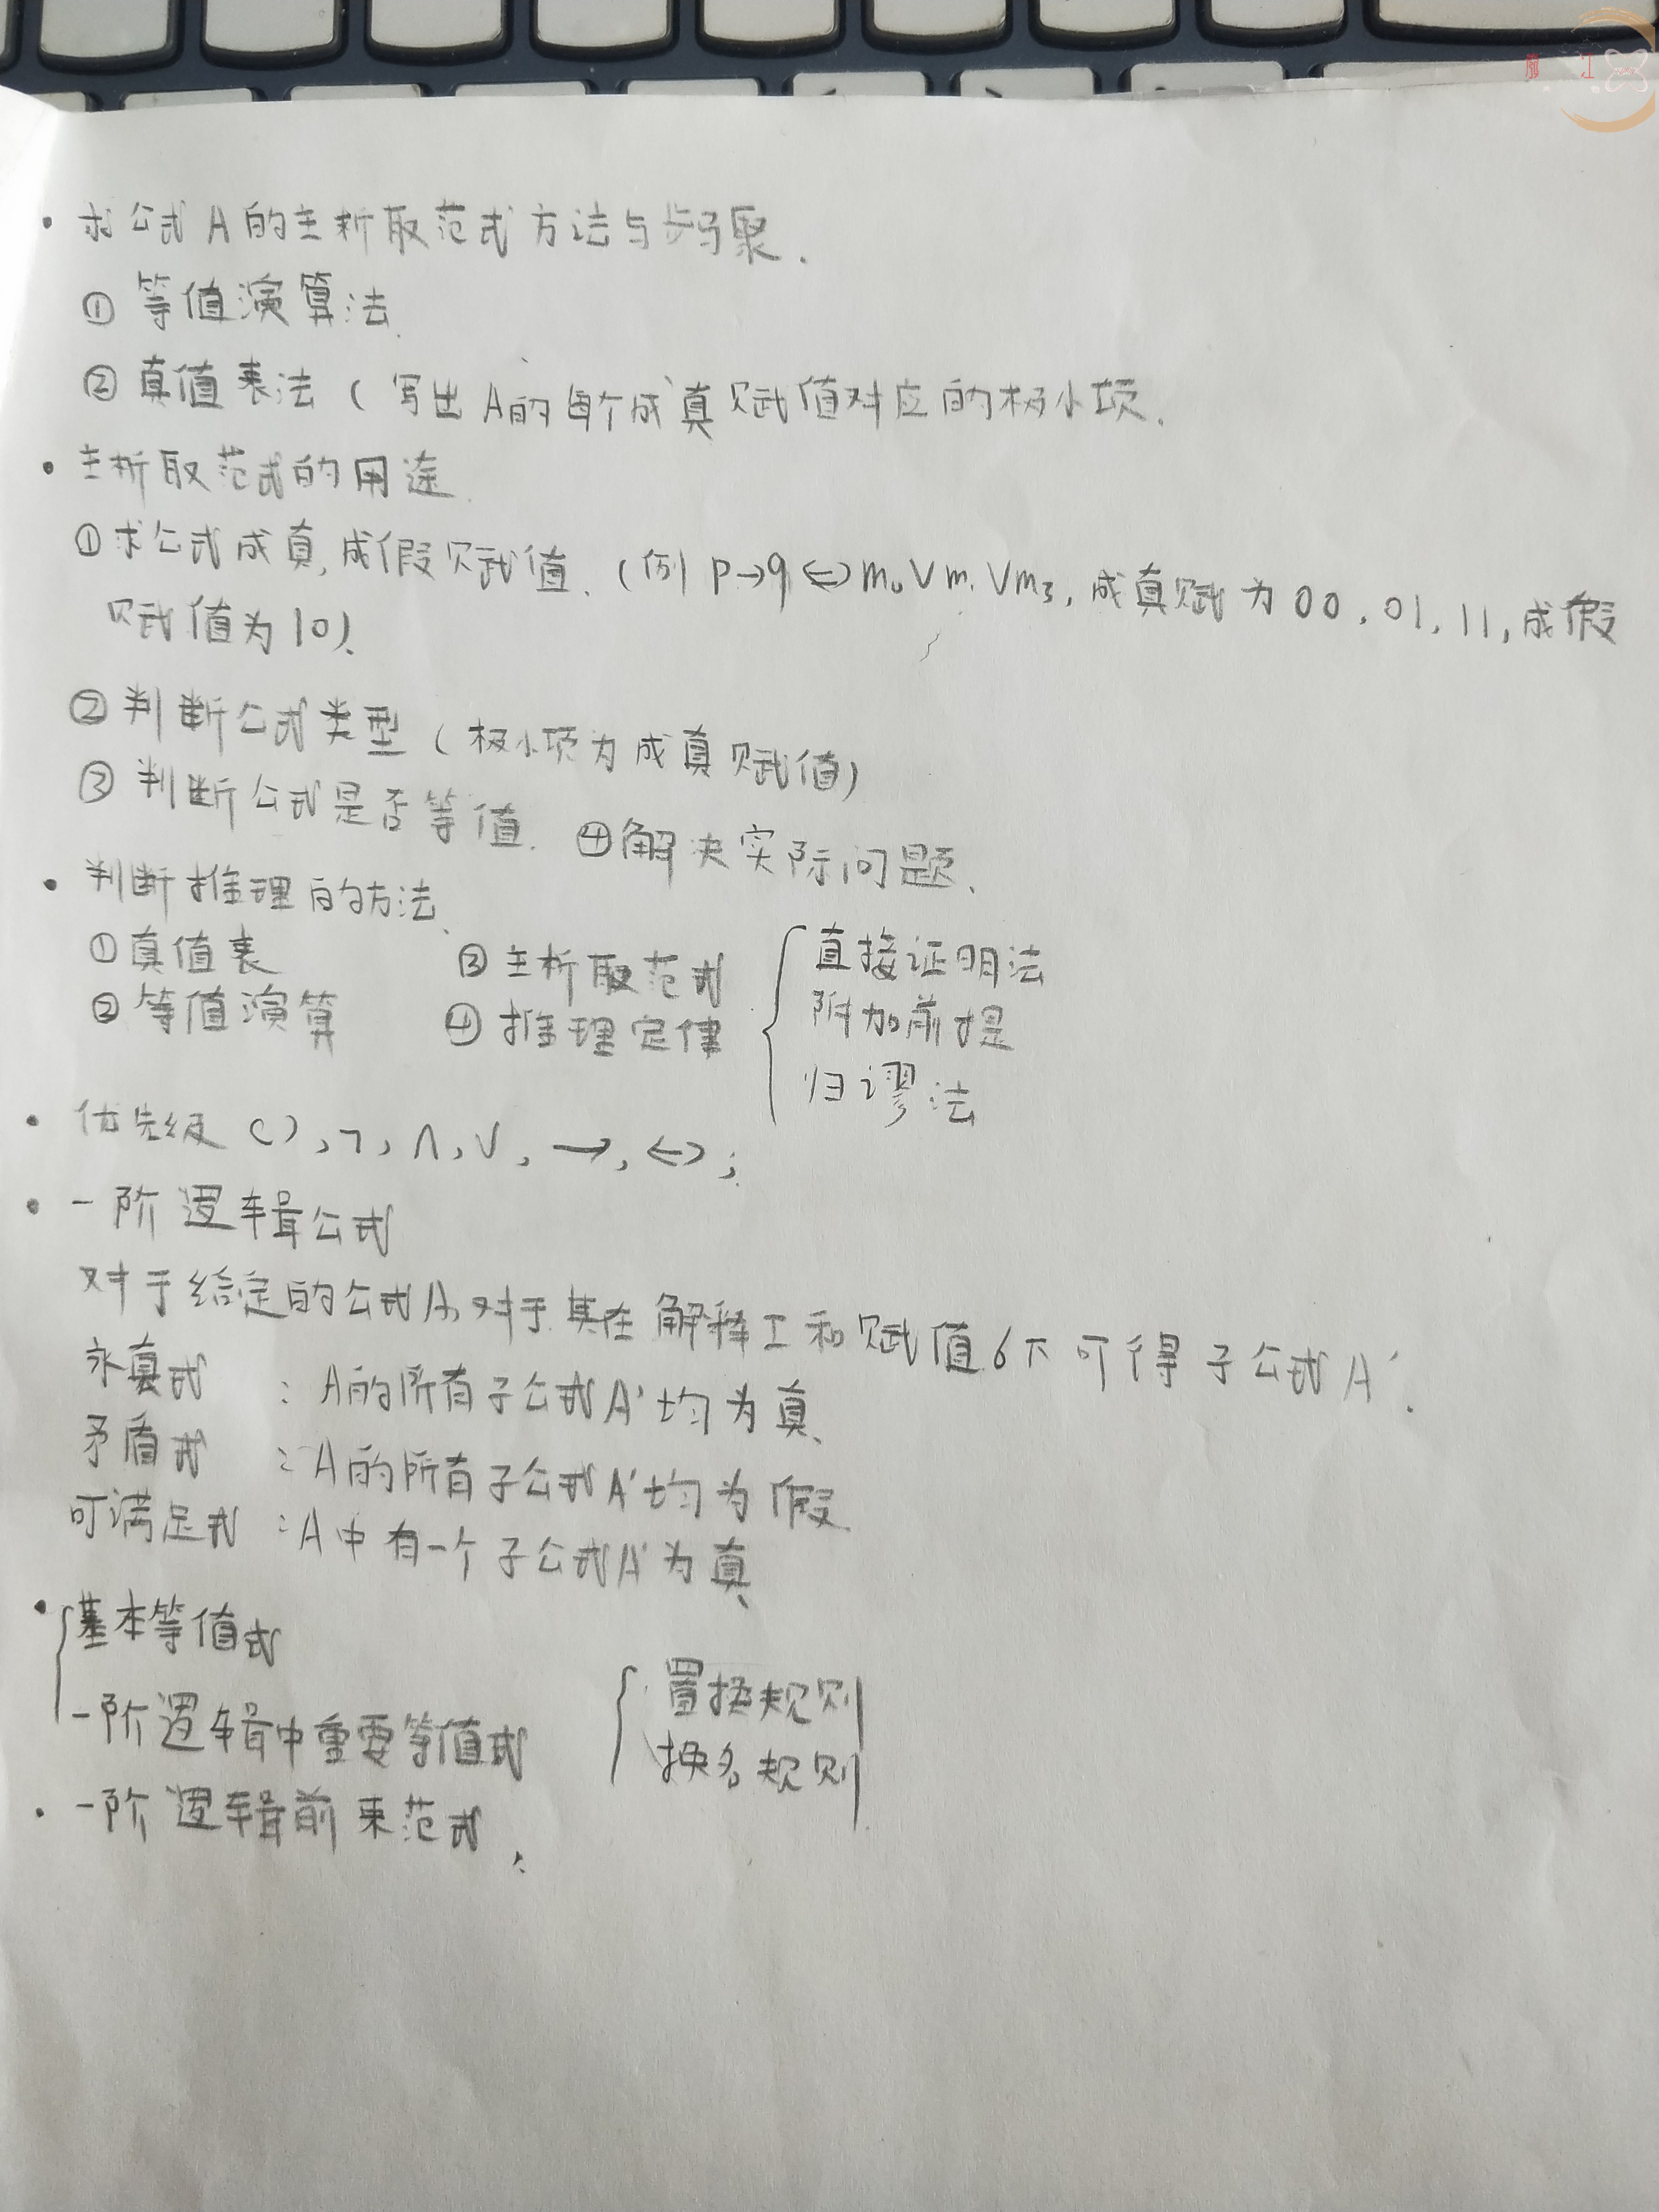 · 求公式A的主析取范式方法与步骤.
① 等值演算法.
② 真值表法 ( 写出A的每个成真赋值对应的极小项.
· 主析取范式的用途.
① 求公式成真,成假赋值.(例 p→q⇔m₀∨m₁∨m₃,成真赋为00,01,11,成假
赋值为10).
② 判断公式类型 (极小项为成真赋值)
③ 判断公式是否等值. ④解决实际问题.
· 判断推理的方法.
①真值表 ③主析取范式 { 直接证明法
②等值演算 ④推理定律 附加前提
归谬法
· 优先级 ( ),¬,∧,∨,→,↔;
· 一阶逻辑公式
对于给定的公式A,对于其在解释I和赋值σ下可得子公式A′.
永真式 : A的所有子公式A′均为真.
矛盾式 : A的所有子公式A′均为假.
可满足式 : A中有一个子公式A′为真
· { 基本等值式
一阶逻辑中重要等值式 { 置换规则
换名规则
· 一阶逻辑前束范式.